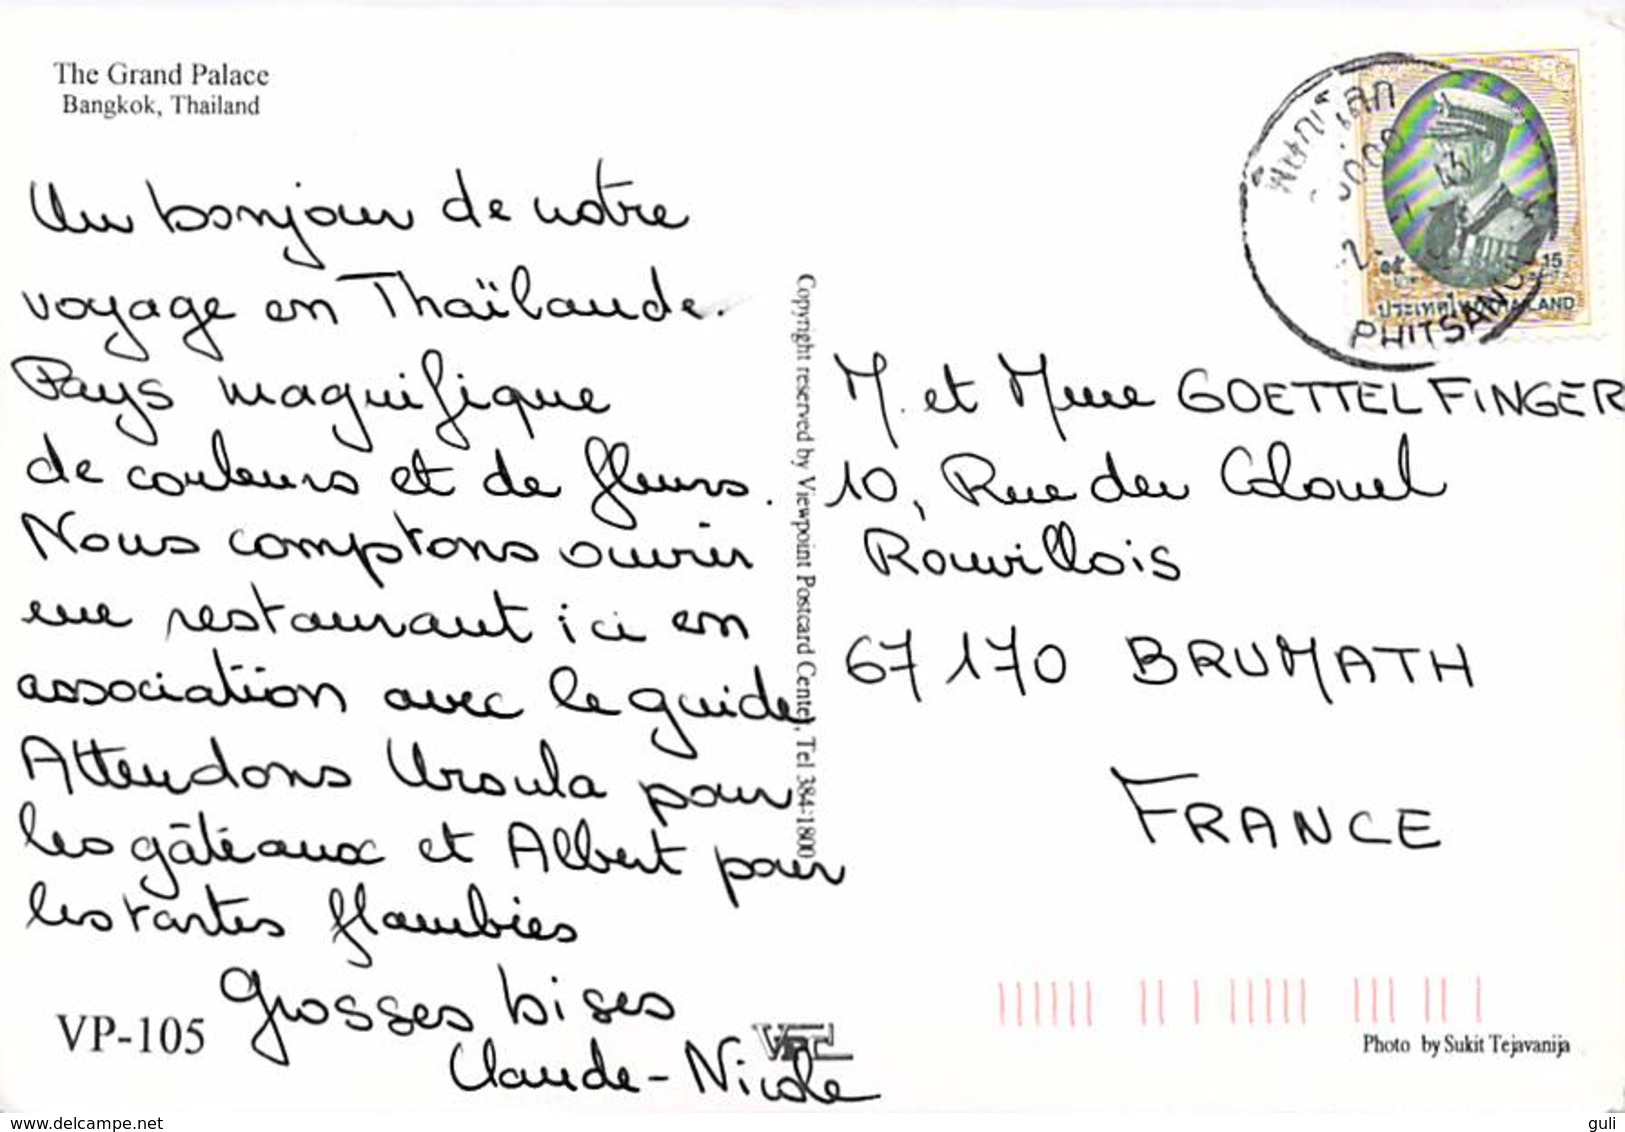 The Grand Palace
Bangkok, Thailand
Un bonjour de notre
voyage en Thaïlande.
Pays magnifique
de couleurs et de fleurs.
Nous comptons ouvrir
une restaurant ici en
association avec le guide
Attendons Ursula pour
les gâteaux et Albert pour
les tartes flambées
Grosses bises
Claude-Nicole
VP-105
Copyright reserved by Viewpoint Postcard Center, Tel 384-1800
พิษณุโลก
PHITSANU
๑๕
15
ประเทศไทย THAILAND
M. et Mme GOETTELFINGER
10, Rue du Colonel
Rouvillois
67170 BRUMATH
FRANCE
Photo by Sukit Tejavanija
www.delcampe.net
guli